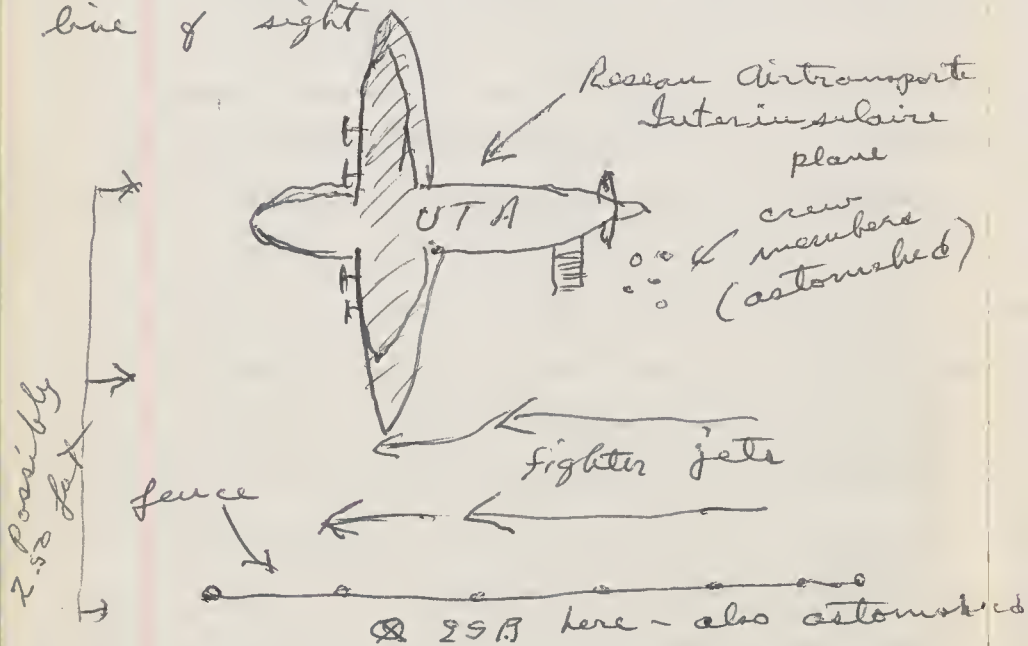 line of sight
Reseau Airtransporte
Interinsulaire
plane
UTA
crew
members
(astonished)
fighter jets
fence
Possibly
here - also astonished